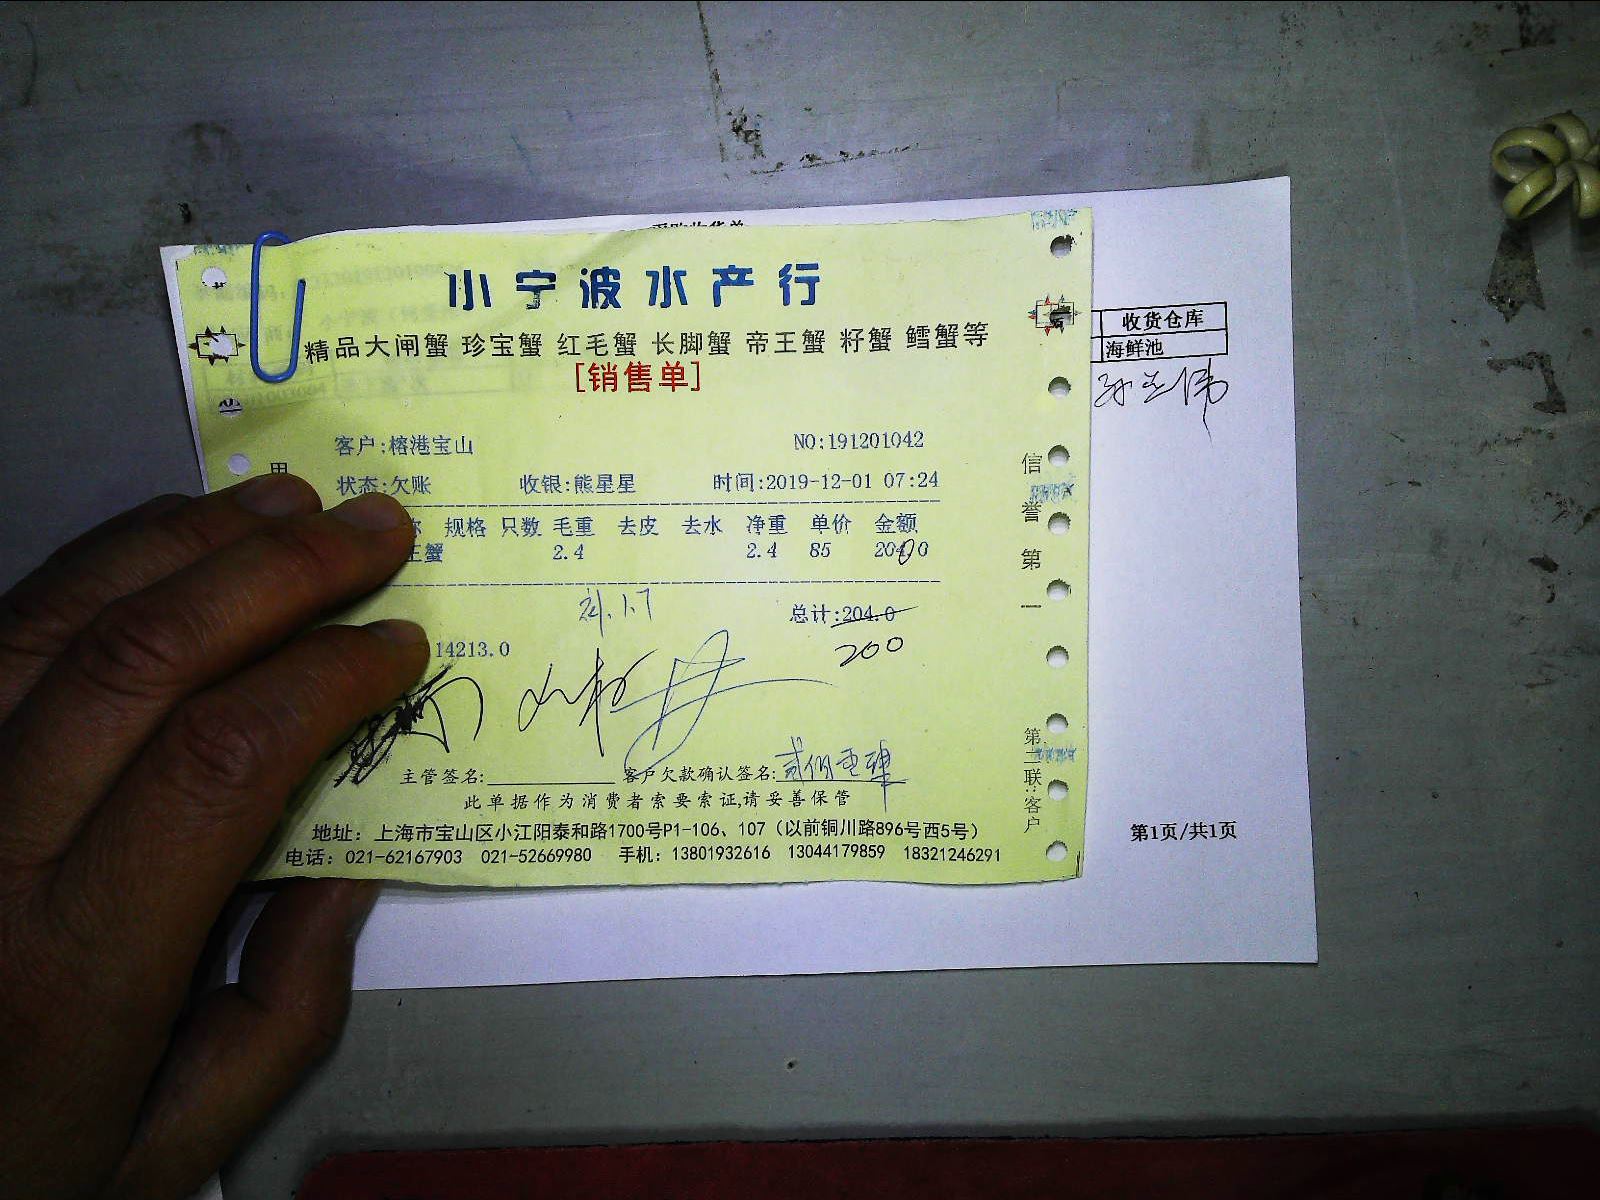 小宁波水产行
精品大闸蟹 珍宝蟹 红毛蟹 长脚蟹 帝王蟹 籽蟹 鳕蟹等
[销售单]
收货仓库
海鲜池
客户:榕港宝山 NO:191201042
状态:欠账 收银:熊星星 时间:2019-12-01 07:24
规格 只数 毛重 去皮 去水 净重 单价 金额
王蟹 2.4 2.4 85
总计:204.0
200
14213.0
主管签名: 客户欠款确认签名:贰佰零肆
此单据作为消费者索要索证,请妥善保管
地址：上海市宝山区小江阳泰和路1700号P1-106、107（以前铜川路896号西5号）
电话：021-62167903 021-52669980 手机：13801932616 13044179859 18321246291
信誉第一
第二联:客户
第1页/共1页